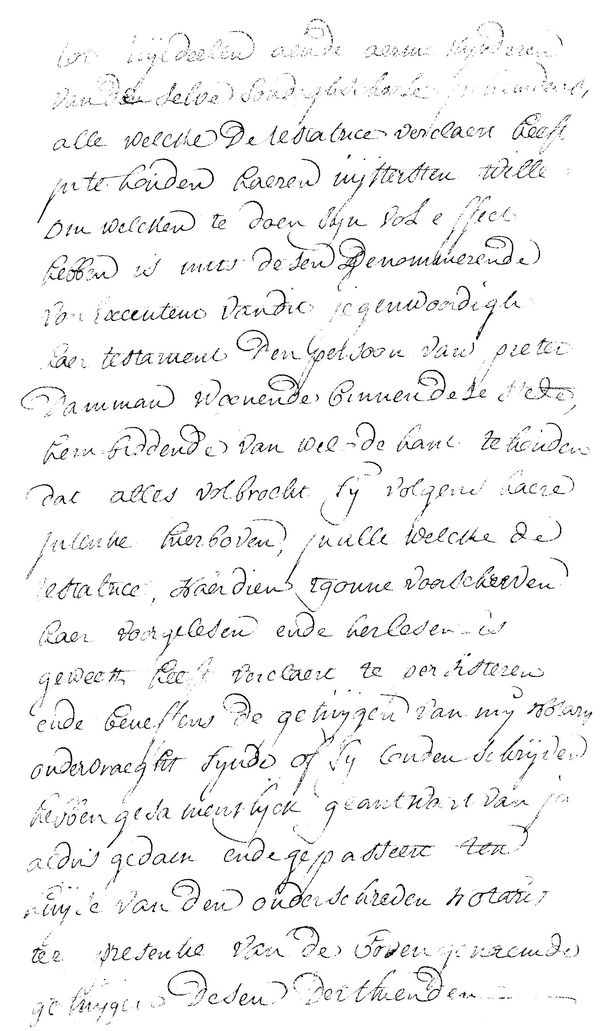 tot uijtdeelen aende aerme kijnderen
van de selve sondaghschole
alle welcke de testatrice verclaert heeft
in te houden haeren uijttersten wille
om welcken te doen sijn vol effect
hebben is mits desen denominerende
voor executeur van dit jegenwoordigh
haer testament den persoon van pieter
Damman woonende binnen dese stede,
hem biddende van wel de hant te houden
dat alles volbrocht sy volgens haere
intentie hierboven, in alle welcke de
testatrice, naer dien tgonne voorschreven
haer voorgelesen ende herlesen is
geweest heeft verclaert te persisteren
ende beneffens de getuijgen van mij notary
ondervraeght synde of sy conden schrijven
hebben gesamentlijck geantwort van ja
aldus gedaen ende gepasseert ten
huyse van den onderschreven notaris
ter presentie van de bovengenoemde
getuijgen desen derthienden